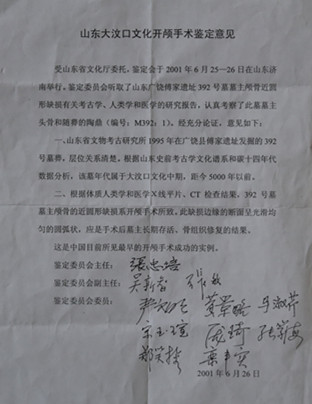 山东大汶口文化开颅手术鉴定意见
受山东省文化厅委托,鉴定会于 2001 年 6 月 25—26 日在山东济
南举行。鉴定委员会听取了山东广饶傅家遗址 392 号墓墓主颅骨近圆
形缺损有关考古学、人类学和医学的研究报告,认真考察了此墓墓主
头骨和随葬的陶鼎(编号:M392:1)。经充分论证,意见如下:
一、山东省文物考古研究所 1995 年在广饶县傅家遗址发掘的 392
号墓葬,层位关系清楚,根据山东史前考古学文化谱系和碳十四年代
数据分析,该墓年代属于大汶口文化中期,距今 5000 年以前。
二、根据体质人类学和医学 X 线平片、CT 检查结果,392 号墓
墓主颅骨的近圆形缺损系开颅手术所致。此缺损边缘的断面呈光滑均
匀的圆弧状,应是手术后墓主长期存活、骨组织修复的结果。
这是中国目前所见最早的开颅手术成功的实例。
鉴定委员会主任: 张忠培
鉴定委员会副主任: 吴新智
鉴定委员会委员:
2001 年 6 月 26 日